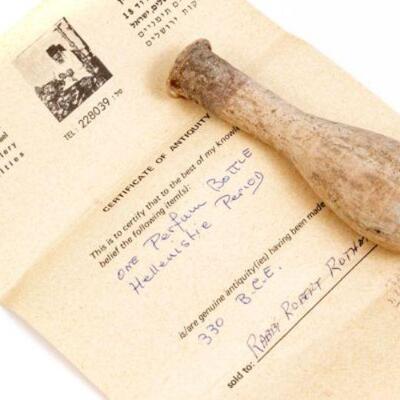 18
ישראל
תימניים
ירושלים
TEL: 228039 טל:
CERTIFICATE OF ANTIQUITY
This is to certify that to the best of my know
belief the following item(s):
ONE Perfum BOTTLE
Hellenistic Period
is/are genuine antiquity(ies) having been made
330 B.C.E.
sold to: RABBI ROBERT ROTHM